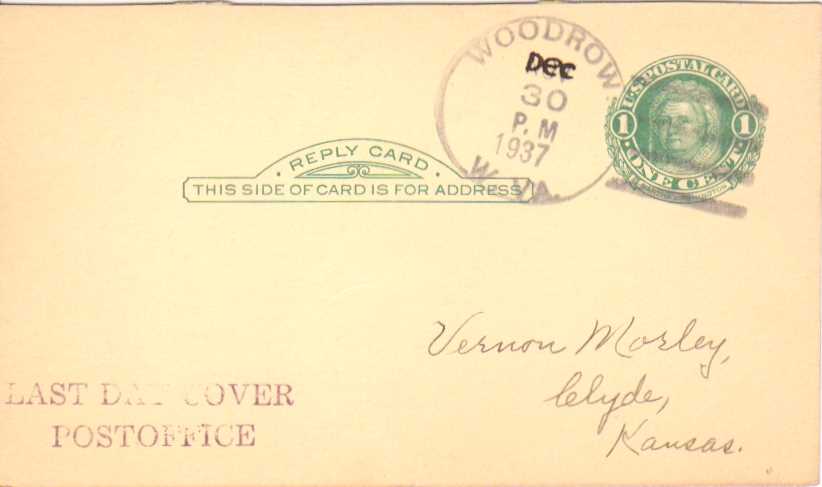 WOODROW
Dec
30
P. M
1937
W. VA.
U.S. POSTAL CARD
1 1
· ONE CENT ·
· REPLY CARD ·
THIS SIDE OF CARD IS FOR ADDRESS
Vernon Morley,
Clyde,
Kansas.
LAST DAY COVER
POSTOFFICE